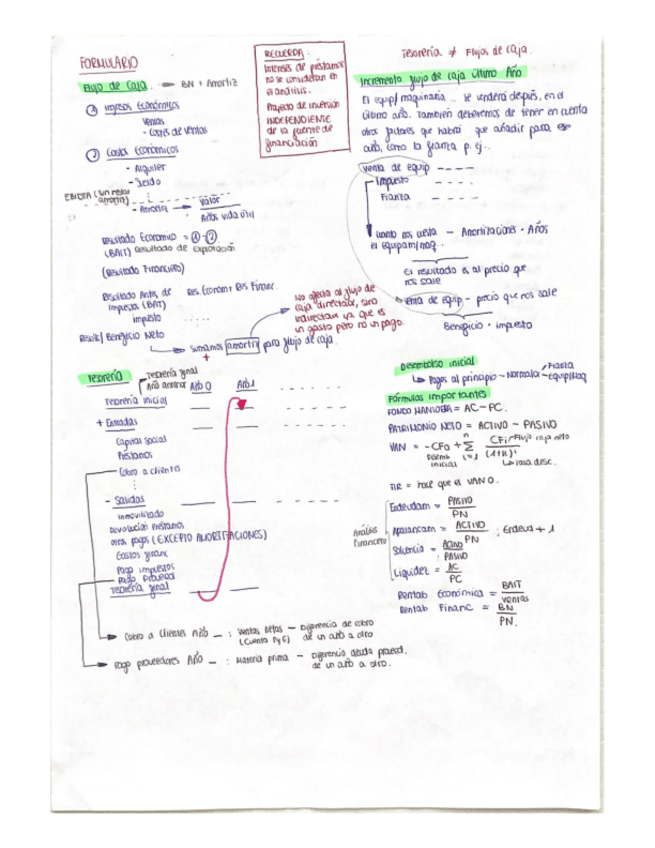 FORMULARIO
Flujo de Caja. → BN + Amortiz
① Ingresos Económicos
Ventas
- Costes de Ventas
② Costes Económicos
- Alquiler
- Sueldo
EBITDA (sin restar amortiz)
- Amortiz → Valor
Años vida útil
Resultado Economico = ① - ②
(BAIT) Resultado de Explotación
(Resultado Financiero)
Resultado Antes de Res. Econom + Res Financ.
Impuesto (BAT)
impuesto .....
Result/ Beneficio Neto
→ Sumamos amortiz para flujo de caja.
+
RECUERDA.
Intereses de préstamos
no se consideran en
el análisis.
Proyecto de inversión
INDEPENDIENTE
de la fuente de
financiación
No afecta al flujo de
caja directam, sino
indirectam ya que es
un gasto pero no un pago.
Tesorería ≠ Flujos de caja.
Incremento flujo de caja Último Año
El equip/ maquinaria ... se venderá después, en el
último año. También deberemos de tener en cuenta
otros factores que habrá que añadir para ese
año, como la fianza p. ej..
Venta de equip ----
Impuesto ----
Fianza ----
Cuanto nos cuesta - Amortizaciones · Años
el equipam/maq.
El resultado es al precio que
nos sale
Venta de equip - precio que nos sale
Beneficio · impuesto
Tesorería
Tesorería final
Año anterior Año 0 Año 1 - - - - - -
Tesorería inicial
+ Entradas
Capital Social
Préstamos
Cobro a clientes
- Salidas
Inmovilizado
Devolución Préstamos
otros pagos (EXCEPTO AMORTIZACIONES)
Gastos financ
Pago impuestos
Pago proveed
Tesorería final
→ Cobro a Clientes Año _ : Ventas Netas - Diferencia de cobro
(Cuenta PyG) de un año a otro
→ Pago proveedores Año _ : Materia prima - Diferencia deuda proveed.
de un año a otro.
Desembolso inicial
↳ Pagos al principio - Normalm Fianza
Equip/Maq
Fórmulas importantes
FONDO MANIOBRA = AC - PC.
PATRIMONIO NETO = ACTIVO - PASIVO
VAN = - CF0 + n Σ i=1 CFi / (1+K)^i → Flujo caja neto
Desemb inicial
↳ tasa desc.
TIR = hace que el VAN 0.
Análisis Financiero
Endeudam = PASIVO / PN
Apalancam = ACTIVO / PN ; Endeud + 1
Solvencia = ACTIVO / PASIVO
Liquidez = AC / PC
Rentab Económica = BAIT / Ventas
Rentab Financ = BN / PN.